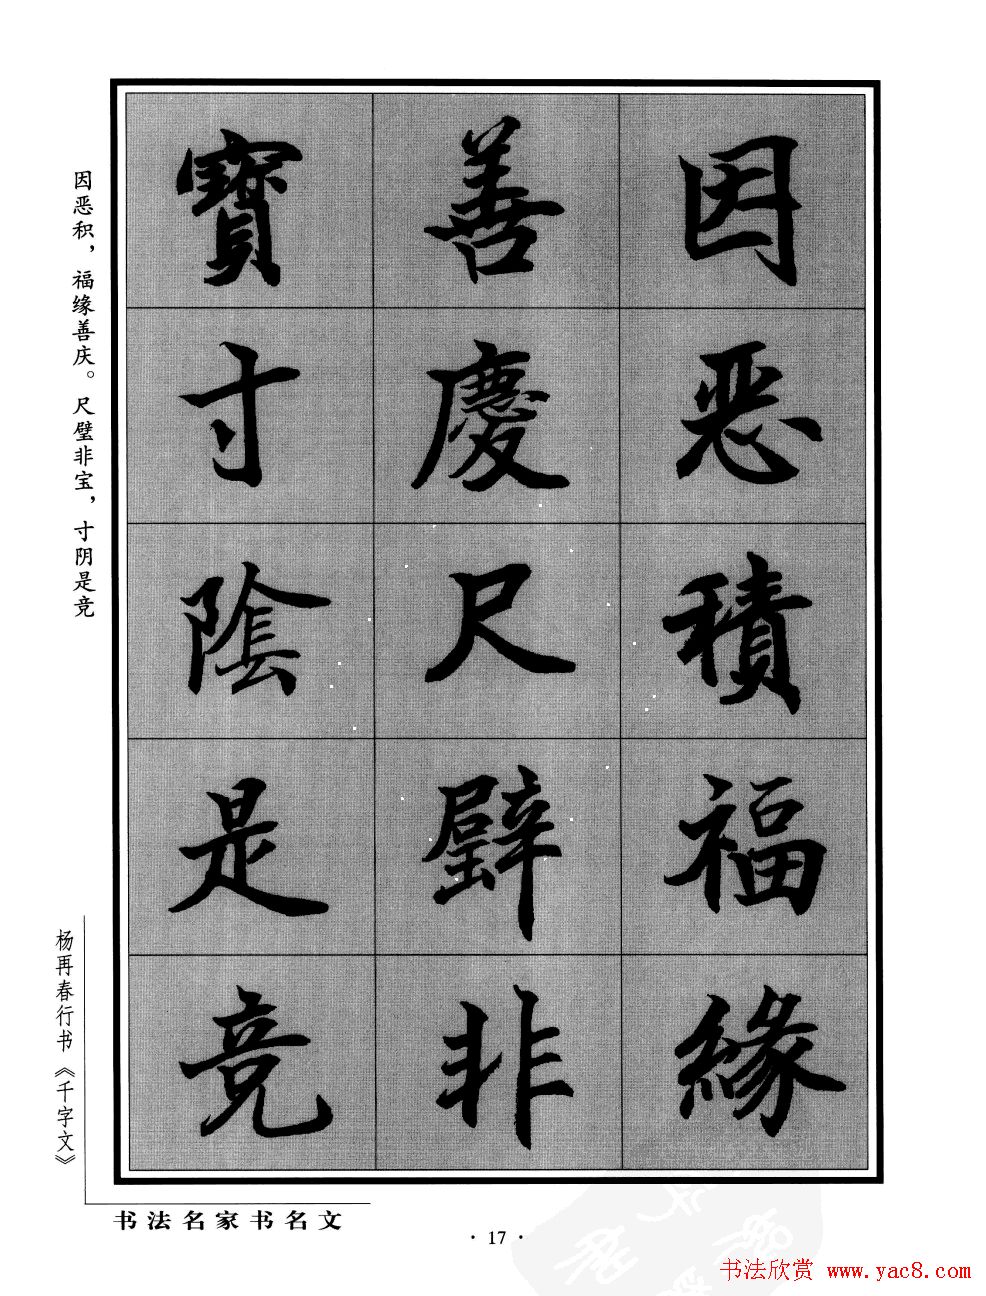 因恶積福緣
善慶尺璧非
寶寸陰是竞
因恶积，福缘善庆。尺璧非宝，寸阴是竞
杨再春行书《千字文》
书法名家书名文
· 17 ·
书法欣赏 www.yac8.com